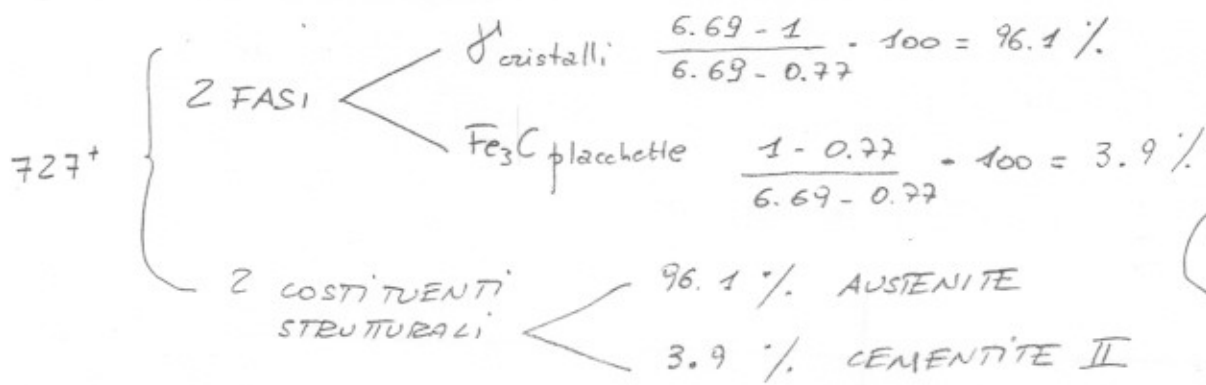 727⁺
2 FASI
γ cristalli 6.69 - 1 / 6.69 - 0.77 · 100 = 96.1 %.
Fe₃C placchette 1 - 0.77 / 6.69 - 0.77 · 100 = 3.9 %.
2 COSTITUENTI
STRUTTURALI
96.1 %. AUSTENITE
3.9 %. CEMENTITE II